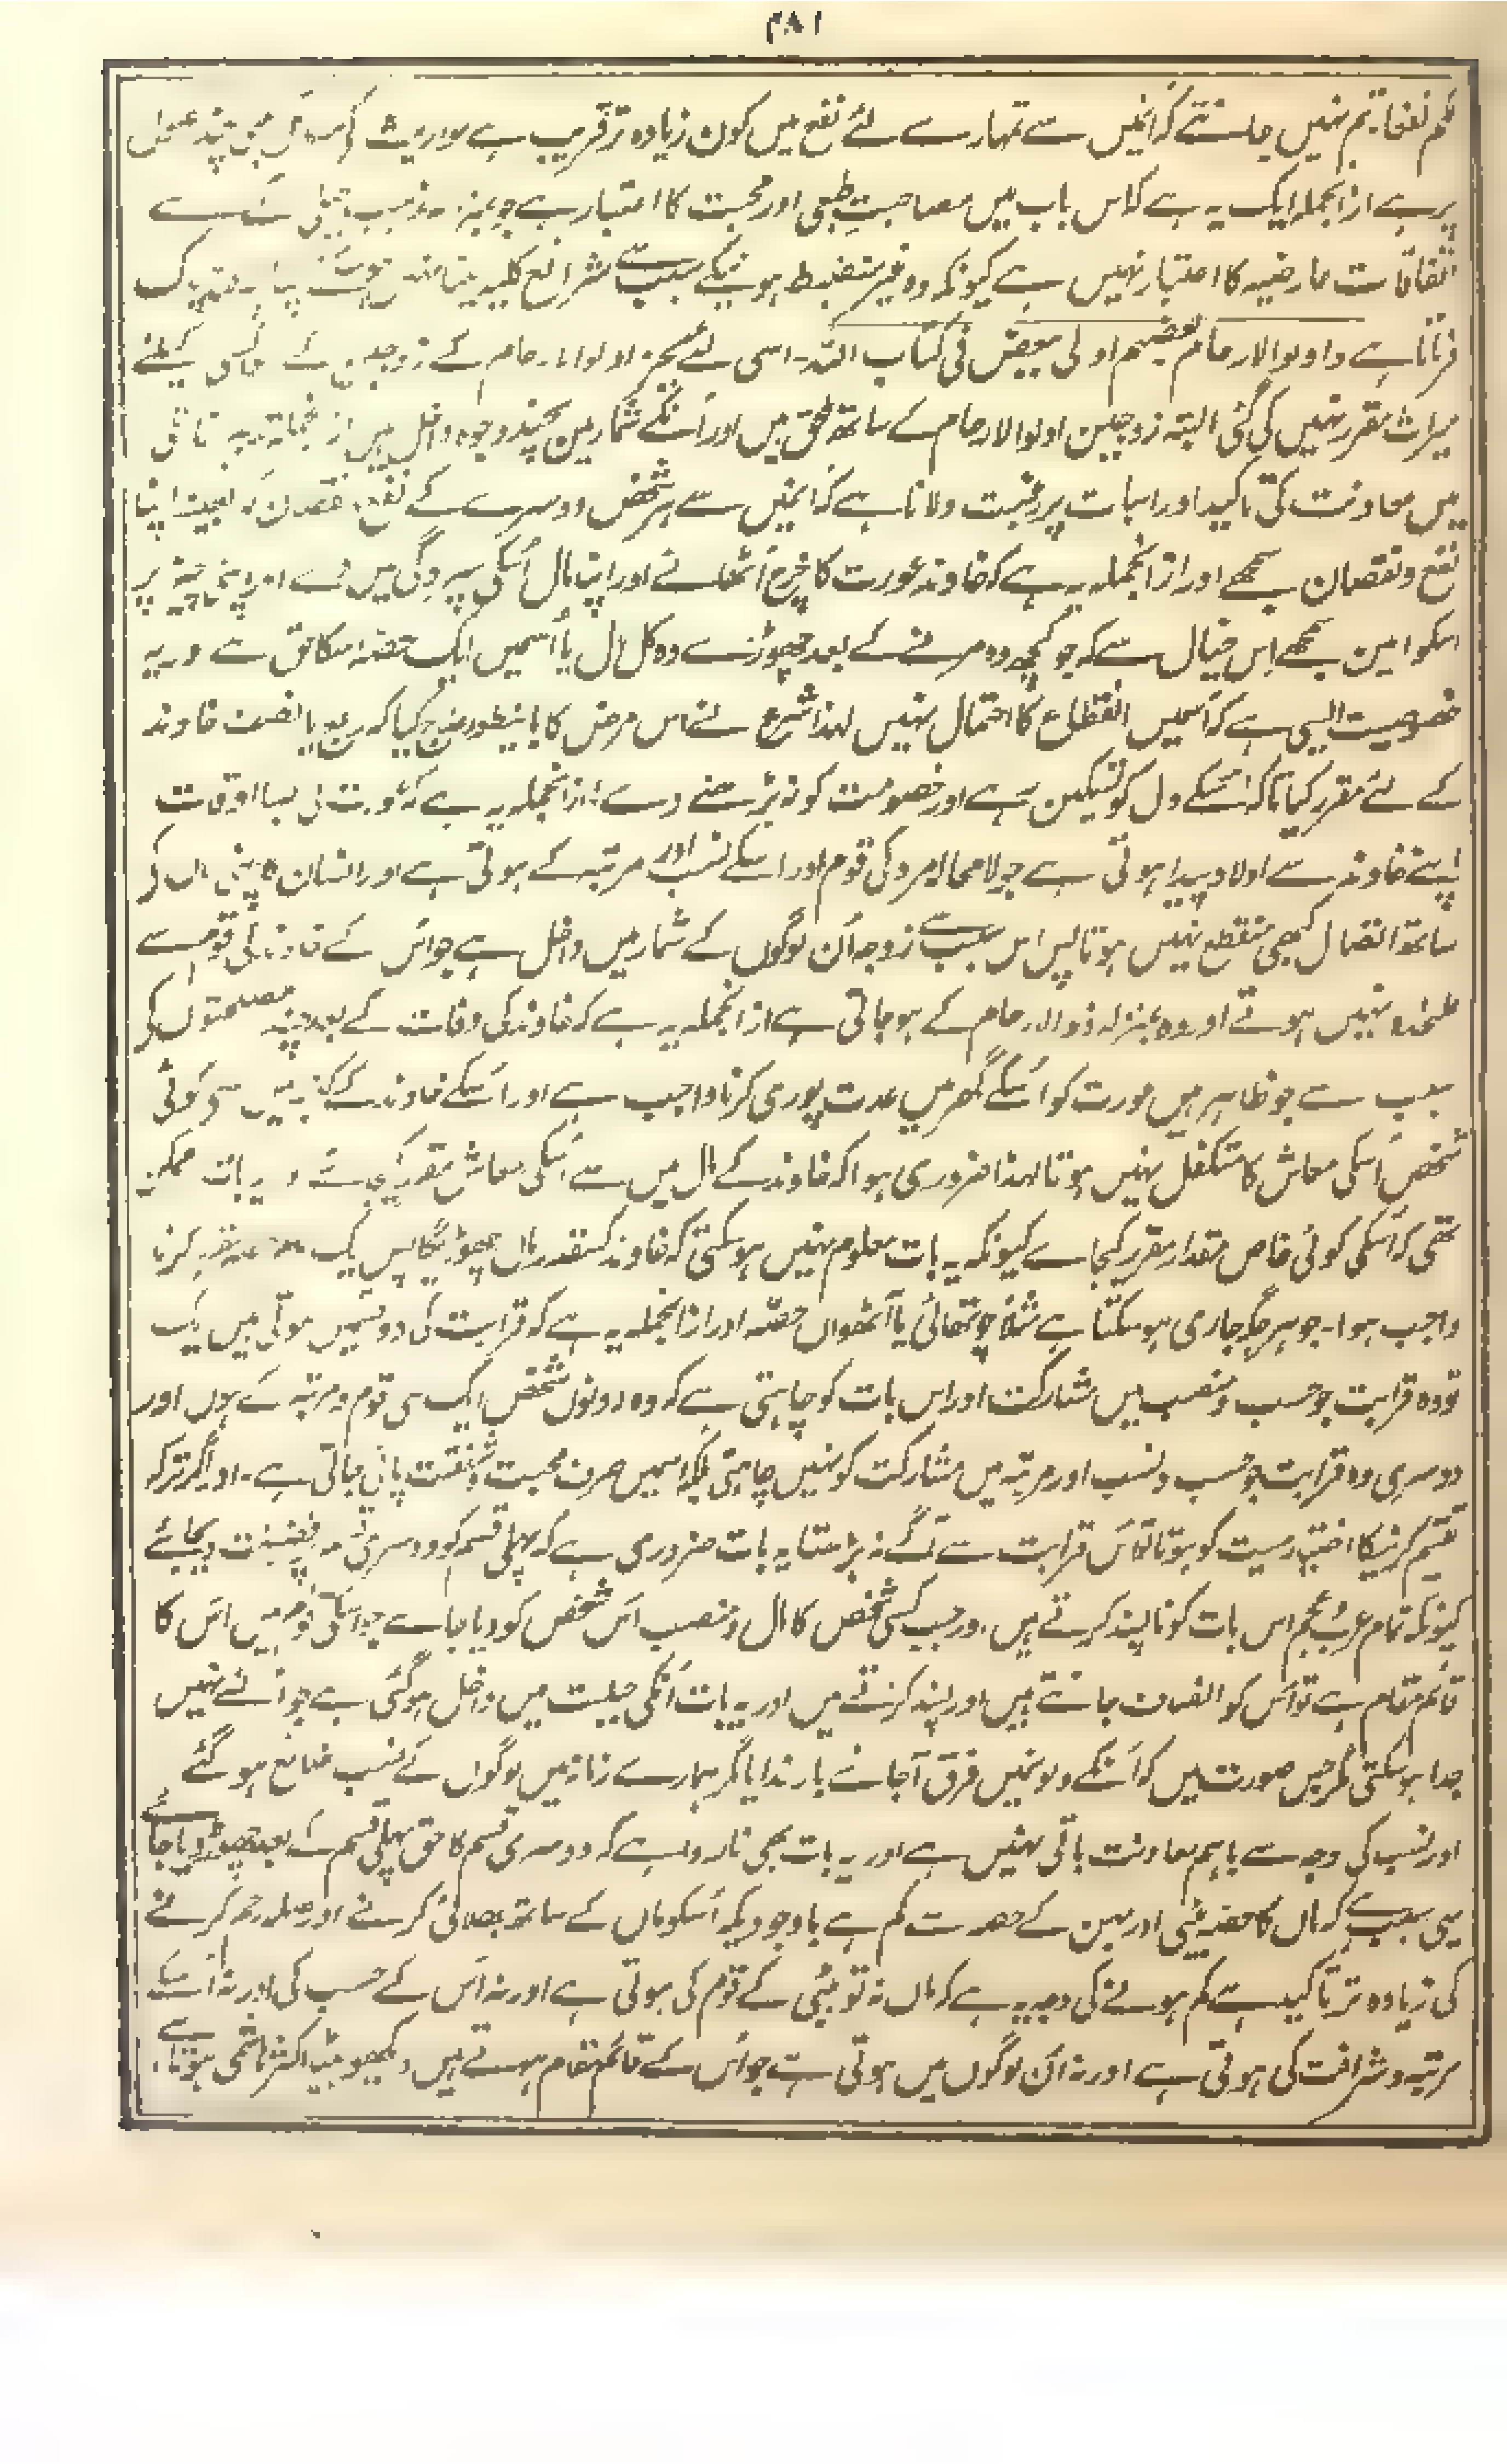 ۴۸۱
لکم نفعا تم نہیں جانتے کہ انمیں سے تمہارے لئے نفع میں کون زیادہ تر قریب ہے مواریث کے مسائل چند
پر ہے ازانجملہ ایک یہ ہے کہ اس باب میں مصاحبت طبعی اور محبت کا اعتبار ہے جو بمنزلہ مذہب
اتفاقات عارضیہ کا اعتبار نہیں ہے کیونکہ وہ غیر منضبط ہونیکے سبب سے شرائع کلیہ
فرماتا ہے واولوالارحام بعضہم اولی ببعض فی کتاب اللہ۔ اسی لئے بجز اولوالارحام کے زوجین کے کسی کیلئے
میراث مقرر نہیں کی گئی البتہ زوجین اولوالارحام کے ساتھ ملحق ہیں اور اُنکے شمار میں بچند وجوہ داخل ہیں از نجملہ
میں معاونت کی تاکید اور اسبات پر رغبت دلانا ہے کہ انمیں سے ہر شخص دوسرے کے نفع و نقصان کو بعینہ اپنا
نفع و نقصان سمجھے اور ازانجملہ یہ ہے کہ خاوند عورت کا خرچ اُٹھاے اور اپنا مال اُسکی سپردگی میں دے اور اپنی چیز پر
اسکو امین سمجھے اِس خیال سے کہ جو کچھ وہ مرنے کے بعد چھوڑے وہ کل مال یا اُسمیں ایک حصہ اسکا حق ہے اور یہ
خصوصیت ایسی ہے کہ اُسمیں انقطاع کا احتمال نہیں لہذا شرع نے اس مرض کا باینطور علاج کیا کہ ربع یا نصف خاوند
کے لئے مقرر کیا تاکہ اُسکے دل کو تسکین رہے اور خصومت کو نہ بڑھنے دے ازانجملہ یہ ہے کہ عورت کی بسا اوقات
اپنے خاوند سے اولاد پیدا ہوتی ہے جو لامحالہ مرد کی قوم اور اسکے نسب اور مرتبہ کے ہوتی ہے اور انسان کا اپنی ماں کی
ساتھ اتصال کبھی منقطع نہیں ہوتا پس اس سبب سے زوجہ اُن لوگوں کے شمار میں داخل ہے جو اُس کے خاوند کی قوم سے
علٰحدہ نہیں ہوتے اور وہ بمنزلہ ذوالارحام کے ہو جاتی ہے ازانجملہ یہ ہے کہ خاوند کی وفات کے بعد چند مصلحتوں کی
سبب سے جو ظاہر ہیں عورت کو اُسکے گھر میں عدت پوری کرنا واجب ہے اور اُسکے خاوند کے کنبہ میں سے کوئی
شخص اُسکی معاش کا متکفل نہیں ہوتا لہذا ضروری ہوا کہ خاوند کے مال میں سے اُسکی معاش مقرر کیجائے اور یہ بات ممکن
تھی کہ اُسکی کوئی خاص مقدار مقرر کیجاے کیونکہ یہ بات معلوم نہیں ہو سکتی کہ خاوند کسقدر مال چھوڑیگا پس ایک حصہ مقرر کرنا
واجب ہوا۔ جو ہر جگہ جاری ہو سکتا ہے مثلاً چوتھائی یا آٹھواں حصہ اور ازانجملہ یہ ہے کہ قرابت کی دو قسمیں ہوتی ہیں ایک
تو وہ قرابت جو حسب و منصب میں مشارکت اور اس بات کو چاہتی ہے کہ وہ دونوں شخص ایک ہی قوم و مرتبہ کے ہوں اور
دوسری وہ قرابت جو حسب و نسب اور مرتبہ میں مشارکت کو نہیں چاہتی بلکہ اسمیں صرف محبت و شفقت پائی جاتی ہے۔ اور اگر ترکہ
تقسیم کرنیکا اختیار میت کو ہوتا تو اُس قرابت سے آگے نہ بڑھتا یہ بات ضروری ہے کہ پہلی قسم کو دوسری پر فضیلت دیجائے
کیونکہ تمام عرب و عجم اس بات کو ناپسند کرتے ہیں۔ اور جب کسی شخص کا مال و منصب اُس شخص کو دیا جاے جو اُسکی قوم میں اُس کا
قائم مقام ہے تو اُس کو انصاف جانتے ہیں اور پسند کرتے ہیں اور یہ بات اُنکی جبلت میں داخل ہو گئی ہے جو اُنسے نہیں
جدا ہو سکتی مگر جس صورت میں کہ اُنکے دلونمیں فرق آجائے بار خدایا مگر ہمارے زمانہ میں لوگوں کے نسب ضائع ہو گئے
اور نسب کی وجہ سے باہم معاونت باقی نہیں ہے اور یہ بات بھی نا روا ہے کہ دوسری قسم کا حق پہلی قسم کے بعد چھوڑ دیا جائے
یہی سبب ہے کہ ماں کا حصہ بیٹی اور بہن کے حصہ سے کم ہے باوجودیکہ اُسکو ماں کے ساتھ بھلائی کرنے اور صلہ رحم کرنے
کی زیادہ تر تاکید ہے کم ہونے کی وجہ یہ ہے کہ ماں نہ تو بیٹی کے قوم کی ہوتی ہے اور نہ اُس کے حسب کی اور نہ اُسکے
مرتبہ و شرافت کی ہوتی ہے اور نہ اُن لوگوں میں ہوتی ہے جو اُس کے قائم مقام ہوتے ہیں دیکھو بیٹا اکثر ہاشمی ہوتا ہے